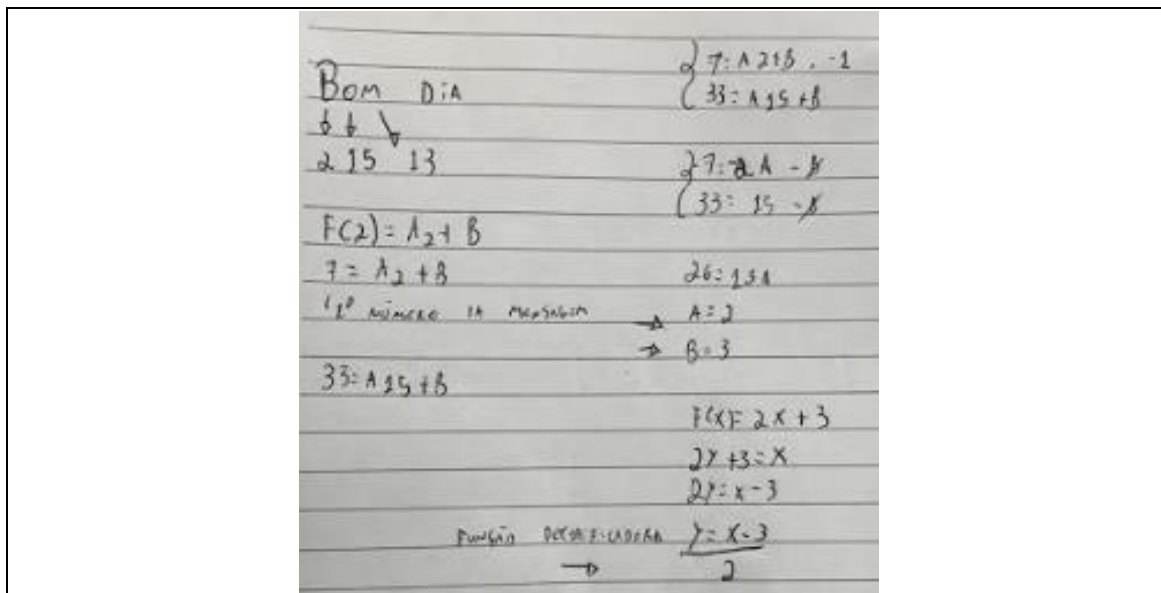 BOM DiA
2 15 13
F(2) = A2 + B
7 = A2 + B
1º NÚMERO DA MENSAGEM
33 = A15 + B
7 = A2+B . -1
33 = A15 + B
33 = 15
26 = 13A
→ A = 2
→ B = 3
F(X) = 2X + 3
2Y + 3 = X
2Y = X - 3
FUNÇÃO DECODIFICADORA → Y = X - 3
2